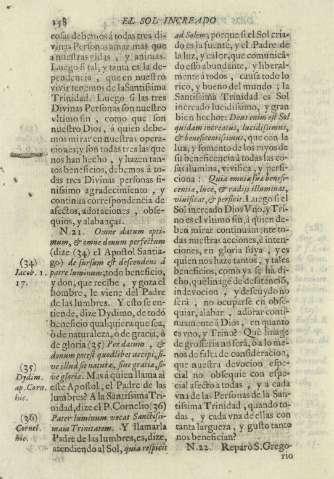 158 EL SOL INCREADO
cosas debemos à todas tres di-
vinas Personas amar mas que
à nuestras vidas, y animas.
Luego si tal, y tanta es la de-
pendencia, que en nuestro
vivir tenemos de la Santissima
Trinidad. Luego si las tres
Divinas Personas son nuestro
vltimo fin, como que son
nuestro Dios, à quien debe-
mos mirar en nuestras opera-
ciones; y son todas tres las que
nos han hecho, y hazen tan-
tos beneficios, debemos à to-
das tres Divinas personas fi-
nissimo agradecimiento, y
continua correspondencia de
afectos, adoraciones, obse-
quios, y alabanças.
N.21. Omne datum opti-
mum, & omne donum perfectum
(dize (34) el Apostol Santia-
go) de sursum est descendens à
patre luminum; todo beneficio,
y don, que recibe, y goza el
hombre, le viene del Padre
de las lumbres. Y esto se en-
tiende, dize Dydimo, de todo
beneficio qualquiera que sea,
ò de naturaleza, ò de gracia, ò
de gloria (35) Per datum, &
donum potest quodlibet accipi, si-
ve illud sit naturæ, sive gratiæ, si-
ve gloriæ. Mas à quien llama el
este Apostol, el Padre de las
lumbres? A la Santissima Tri-
nidad, dize el P. Cornelio (36)
Pater luminum vocat Sanctissi-
mam Trinitatem. Y llamarla
Padre de las lumbres, es, dize,
atendiendo al Sol, quia respicit
(34)
Iacob. 1.
17.
(35)
Dydim.
ap. Corn.
hic.
(36)
Cornel.
hic.
ad Solem; porque si el Sol cria-
do es la fuente, y el Padre de
la luz, y calor, que comunicã-
do esso abundante, y liberal-
mente à todos, causa todo lo
rico, y bueno del mundo; la
Santissima Trinidad es Sol
increado lucidissimo, y gran
bien hechor: Deus enim est Sol
quidam increatus, lucidissimus,
& beneficentissimus, que con la
luz, y fomento de los rayos de
su beneficencia à todas las co-
sas ilumina, vivifica, y perfi-
ciona: Quia omnia sue benefi-
centiæ, luce, & radijs illuminat,
vivificat, & perficit. Luego si el
Sol increado Dios Vno, y Tri-
no es el vltimo fin, à quien de-
bemos mirar continuamẽte to-
das nuestras acciones, è inten-
ciones, en gloria suya, y es
quien nos haze tantos, y tales
beneficios, como ya se ha di-
cho, què linage de desatencion,
indevocion, y descuydo no
serà, no ocuparse en obse-
quiar, alabar, adorar conti-
nuamente à Dios, en quanto
es vno, y Trino? Què linage
de grosseria no serà, ò a lo me-
nos de falta de consideracion,
que nuestra devocion espe-
cial no obsequie con espe-
cial afecto à todas, y à cada
vna de las Personas de la San-
tissima Trinidad, quando to-
das, y cada vna de ellas con
tanta larguera, y gusto tanto
nos benefician?
N.22. Reparò S. Grego-
rio